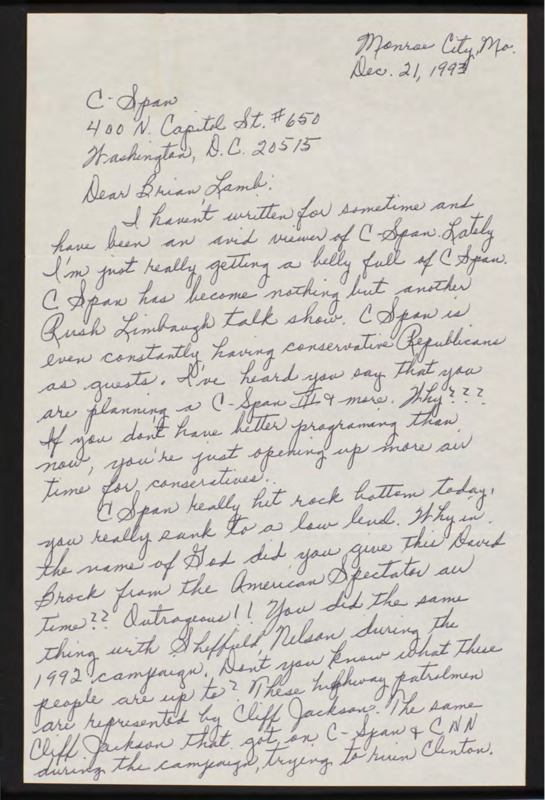 Monroe City, Mo.
Dec. 21, 1993
C-Span
400 N. Capitol St. #650
Washington, D.C. 20515
Dear Brian Lamb:
I haven't written for sometime and
have been an avid viewer of C-Span. Lately
I'm just really getting a belly full of C Span.
C Span has become nothing but another
Rush Limbaugh talk show. C Span is
even constantly having conservative Republicans
as guests. I've heard you say that you
are planning a C-Span II & more. Why???
If you don't have better programing than
now, you're just opening up more air
time for conseratives.
C Span really hit rock bottom today,
you really sunk to a low level. Why in
the name of God did you give this David
Brock from the American Spectator air
time?? Outrageous!! You did the same
thing with Sheffield Nelson during the
1992 campaign. Don't you know what these
people are up to? These highway patrolmen
are represented by Cliff Jackson. The same
Cliff Jackson that got on C-Span & CNN
during the campaign, trying to ruin Clinton.